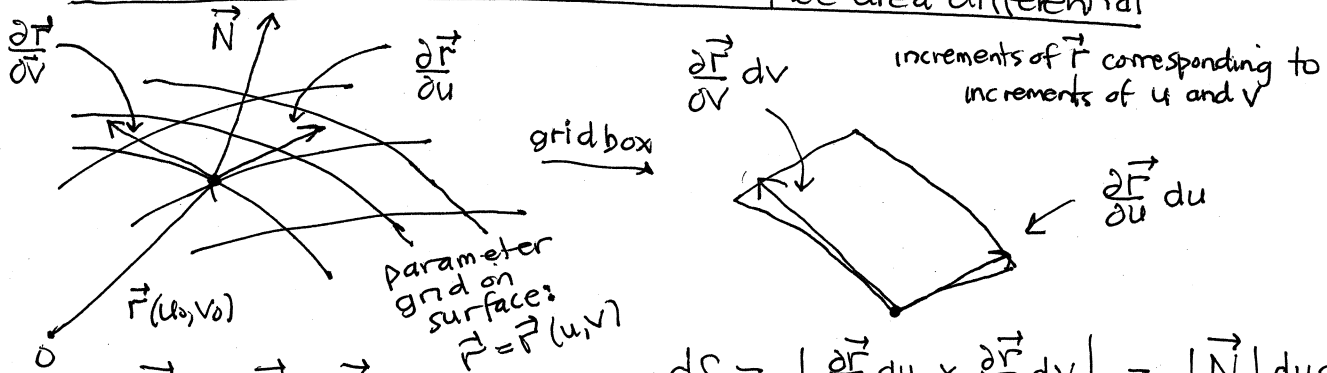 the area differential
∂r⃗/∂v
N⃗
∂r⃗/∂u
r⃗(u₀,v₀)
O
parameter
grid on
surface:
r⃗ = r⃗(u,v)
grid box
∂r⃗/∂v dv
increments of r⃗ corresponding to
increments of u and v
∂r⃗/∂u du
dS = | ∂r⃗/∂u du × ∂r⃗/∂v dv | = |N⃗| du